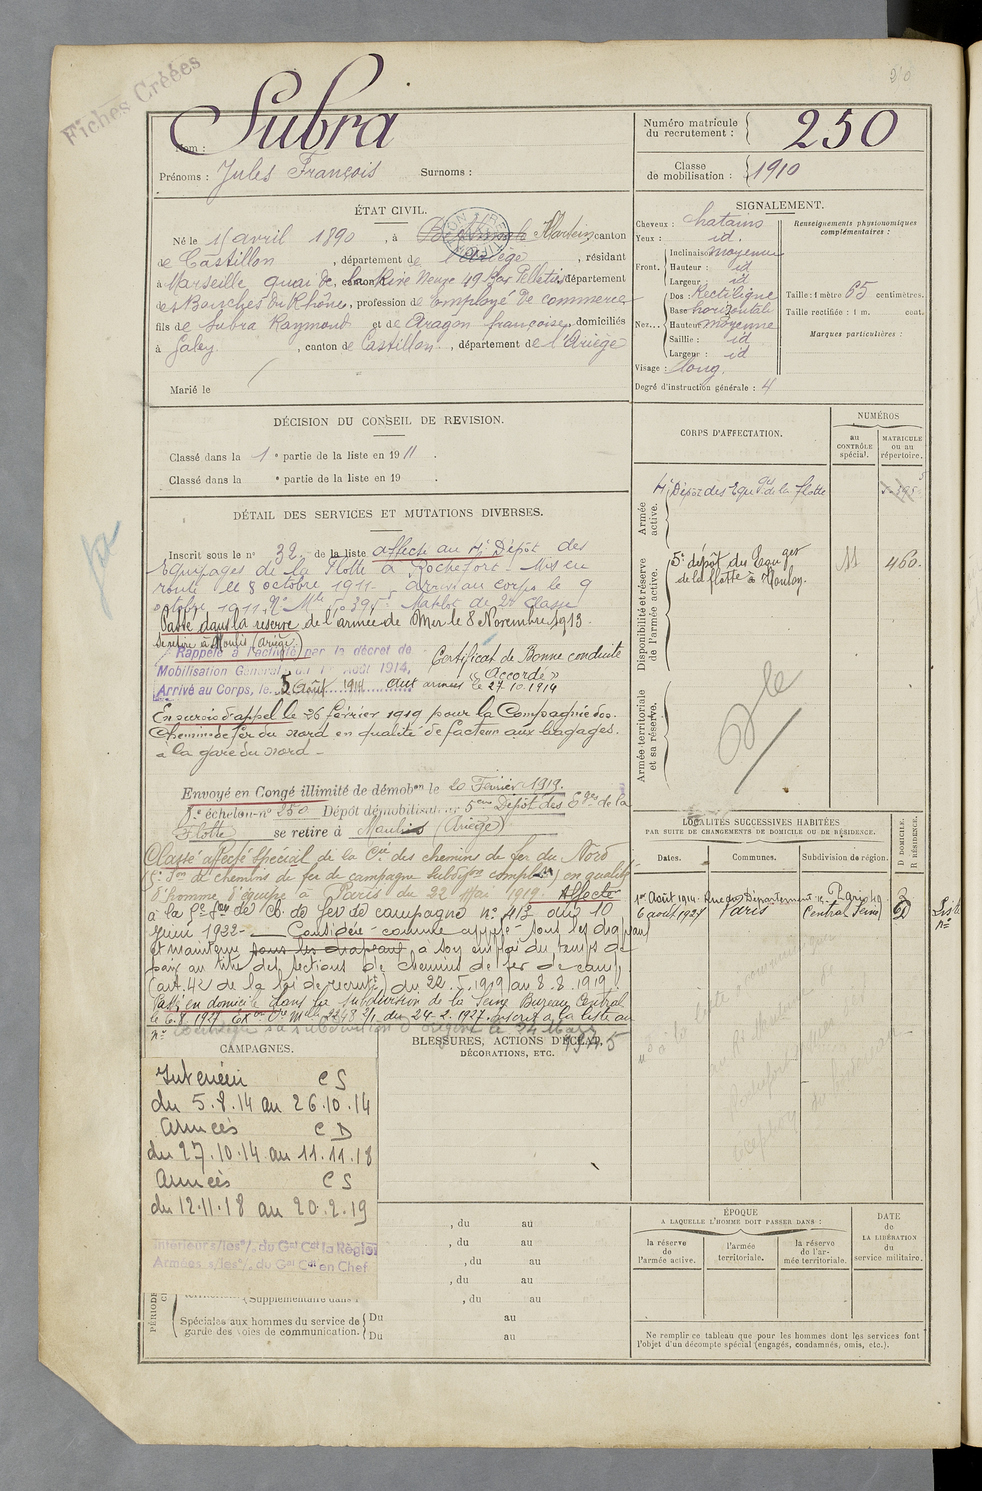 Fiches Créées
210
Subra
Nom :
Prénoms : Jules François Surnoms :
Numéro matricule
du recrutement : 250
Classe
de mobilisation : 1910
ÉTAT CIVIL.
Né le 11 avril 1890, à canton
de Castillon, département de l'Ariège, résidant
à Marseille, quai de Rive Neuve 49 département
des Bouches du Rhône, profession de Employé de commerce
fils de Subra Raymond et de Aragon françoise, domiciliés
à Galey, canton de Castillon, département de l'Ariège
Marié le
SIGNALEMENT.
Cheveux : chatains
Yeux : id.
Front. Inclinaison moyenne
Hauteur : id
Largeur id
Nez... Dos : Rectiligne
Base horizontale
Hauteur moyenne
Saillie : id
Largeur : id
Visage : long.
Degré d'instruction générale : 4
Renseignements physionomiques
complémentaires :
Taille : 1 mètre 65 centimètres.
Taille rectifiée : 1 m. cent.
Marques particulières :
DÉCISION DU CONSEIL DE REVISION.
Classé dans la 1e partie de la liste en 1911.
Classé dans la e partie de la liste en 19 .
DÉTAIL DES SERVICES ET MUTATIONS DIVERSES.
Inscrit sous le n° 32 de la liste affecté au 4e Dépôt des
Equipages de la Flotte à Rochefort. Mis en
route le 8 octobre 1911. Arrivé au corps le 9
octobre 1911. Matelot de 2e Classe
Passé dans la réserve de l'armée de Mer le 8 Novembre 1913.
Se retire à Moulis (Ariège)
Rappelé à l'activité par le décret de
Mobilisation Générale du 1er Août 1914,
Arrivé au Corps, le 5 Août 1914 aux armées le 27.10.1914
Certificat de Bonne conduite
"Accordé"
En sursis d'appel le 26 février 1919 pour la Compagnie des
Chemins de fer du Nord en qualité de facteur aux bagages.
à la gare du Nord -
Envoyé en Congé illimité de démobon le 20 Février 1919.
échelon n° 250 Dépôt démobilisateur 5ème Dépôt des Eges de la
Flotte se retire à Moulis (Ariège)
Classé affecté spécial de la Cie des chemins de fer du Nord
(5e Son de chemins de fer de campagne) en qualité
d'homme d'équipe à Paris du 22 Mai 1919. Affecté
à la 5e Son de ch. de fer de campagne n° 413 du 10
Juin 1922 - Considéré comme appelé sous les drapeaux
et maintenu sous les drapeaux à son emploi du temps de
paix au titre des sections de chemins de fer de camp.
(art. 42 de la loi de recrutt) du 22.5.1919 au 8.8.1919.
Passé en domicile dans la subdivision de la Seine Bureau Central
le 6.8.1927. du 24.2.1927. inscrit à la liste au
n°
le 24 Mars
1945
CORPS D'AFFECTATION.
NUMÉROS
au
CONTRÔLE
spécial.
MATRICULE
ou au
répertoire.
Armée
active.
4e Dépôt des Equges de la flotte
Disponibilité et réserve
de l'armée active.
5e dépôt des Equges
de la flotte à Toulon. 11 460.
Armée territoriale
et sa réserve.
LOCALITÉS SUCCESSIVES HABITÉES
PAR SUITE DE CHANGEMENTS DE DOMICILE OU DE RÉSIDENCE.
Dates.
Communes.
Subdivision de région.
D DOMICILE.
R RÉSIDENCE.
1er Août 1914
6 août 1927 Paris Central Seine D
Liste
n°
CAMPAGNES.
Intérieur CS
du 5.8.14 au 26.10.14
Armées CD
du 27.10.14 au 11.11.18
Armées CS
du 12.11.18 au 20.2.19
Intérieur s/les°/, du Gal Ct la Région
Armées s/les°/, du Gal Ct en Chef
BLESSURES, ACTIONS D'ÉCLAT,
DÉCORATIONS, ETC.
, du au
, du au
, du au
, du au
(Supplémentaire dans l' , du au
Spéciales aux hommes du service de
garde des voies de communication.
Du au
Du au
ÉPOQUE
A LAQUELLE L'HOMME DOIT PASSER DANS :
la réserve
de
l'armée active.
l'armée
territoriale.
la réserve
de l'ar-
mée territoriale.
DATE
de
LA LIBÉRATION
du
service militaire.
Ne remplir ce tableau que pour les hommes dont les services font
l'objet d'un décompte spécial (engagés, condamnés, omis, etc.).